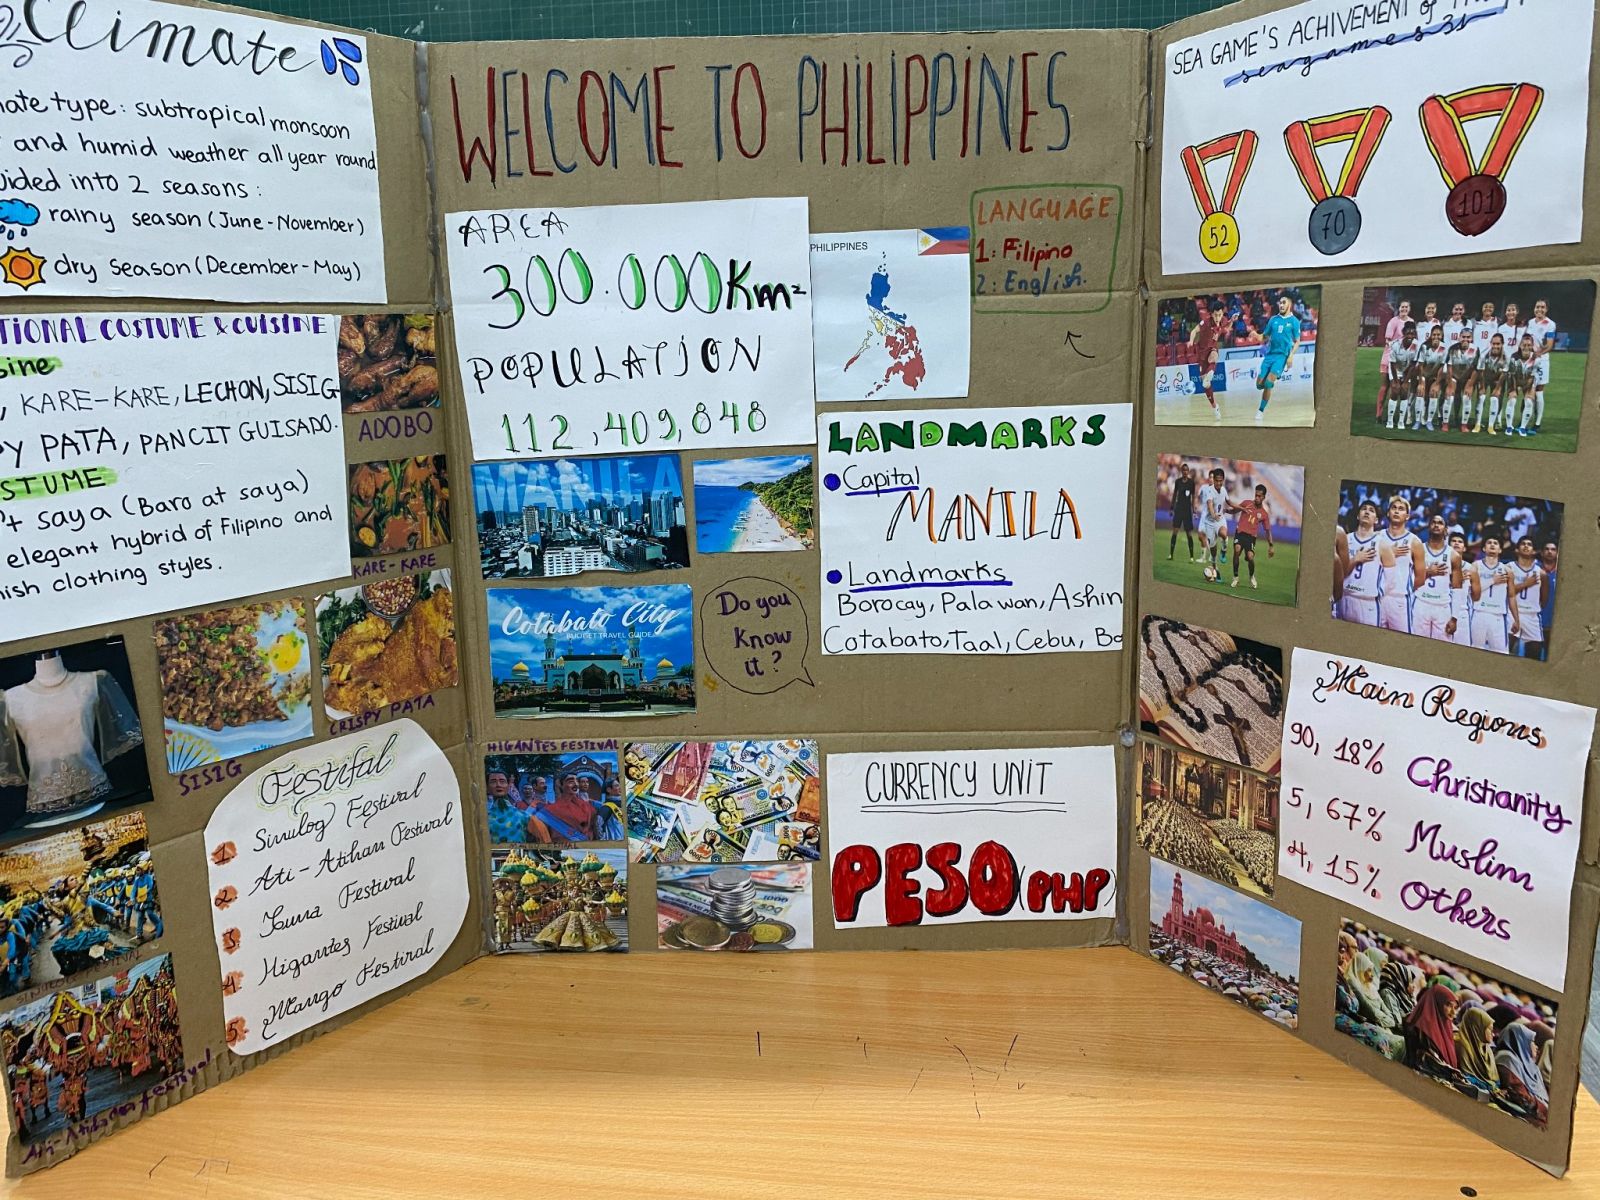 Climate
ate type: subtropical monsoon
and humid weather all year round
vided into 2 seasons:
rainy season (June-November)
dry season (December-May)
TIONAL COSTUME & CUISINE
sine
, KARE-KARE, LECHON, SISIG
PY PATA, PANCIT GUISADO.
STUME
saya (Baro at saya)
elegant hybrid of Filipino and
nish clothing styles.
ADOBO
KARE-KARE
CRISPY PATA
SISIG
Festifal
1. Sinulog Festival
2. Ati-Atihan Festival
3. Festival
4. Higantes Festival
5. Mango Festival
SINULOG FESTIVAL
Ati-Atihan festival
WELCOME TO PHILIPPINES
AREA
300.000 Km²
POPULATION
112,409,848
PHILIPPINES
LANGUAGE
1: Filipino
2: English.
MANILA
Cotabato City
BUDGET TRAVEL GUIDE
Do you
know
it?
LANDMARKS
Capital
MANILA
Landmarks
Borocay, Palawan, Ashin
Cotabato, Taal, Cebu, Bo
HIGANTES FESTIVAL
CURRENCY UNIT
PESO (PHP)
SEA GAME'S ACHIVEMENT of
seagames 31
52
70
101
Main Regions
90, 18% Christianity
5, 67% Muslim
4, 15% Others